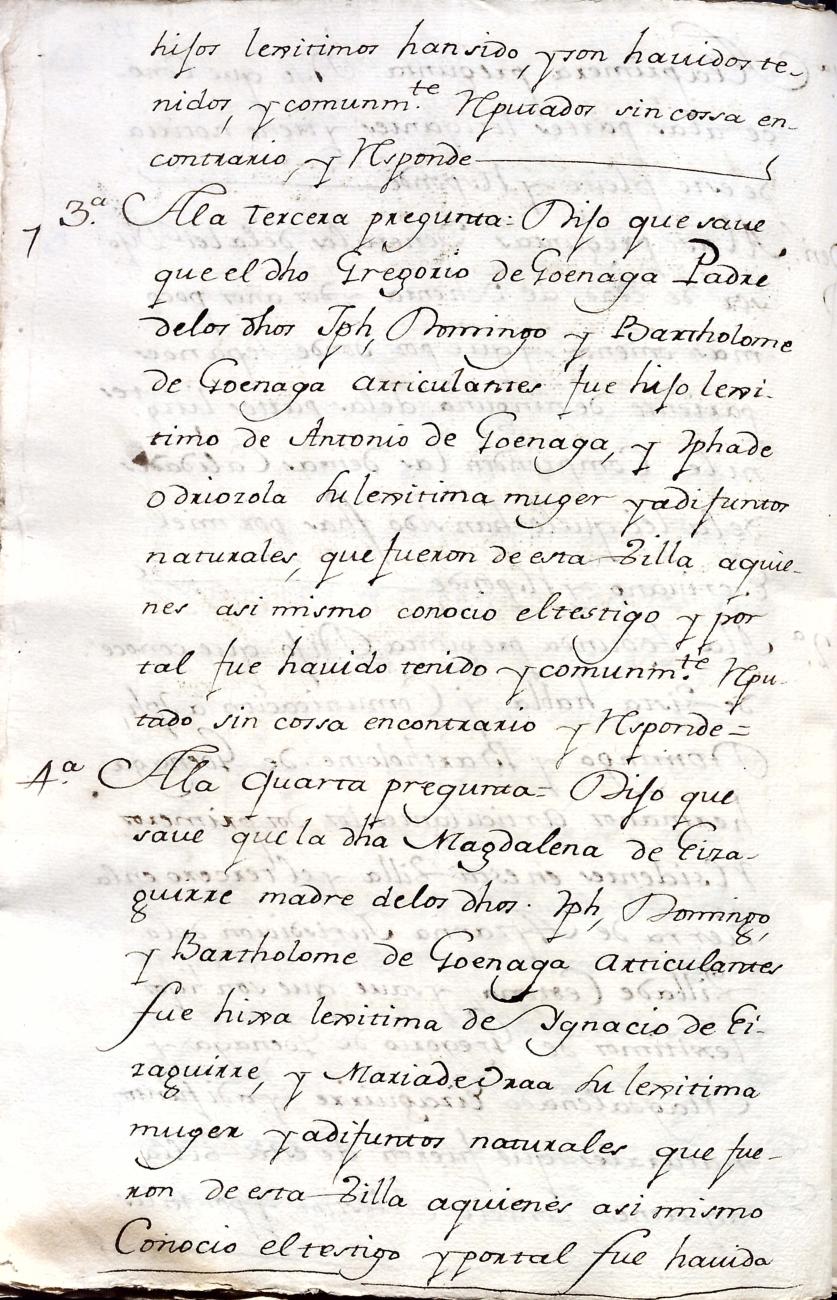 hijos lexitimos han sido y son hauidos te-
nidos, y comunm.te Rputados sin cossa en-
contrario, y Rsponde
3.a A la tercera pregunta: Dijo que saue
que el dho Gregorio de Goenaga Padre
de los dhos Jph, Domingo y Bartholome
de Goenaga articulantes fue hijo lexi-
timo de Antonio de Goenaga, y Jpha de
Odriozola su lexitima muger ya difuntos
naturales, que fueron de esta Villa a quie-
nes asi mismo conocio el testigo y por
tal fue hauido tenido y comunm.te Rpu-
tado sin cossa en contrario y Rsponde=
4.a A la quarta pregunta= Dijo que
saue que la dha Magdalena de Eiza-
guirre madre de los dhos. Jph, Domingo,
y Bartholome de Goenaga articulantes
fue hixa lexitima de Ygnacio de Ei-
zaguirre, y Maria de Oraa su lexitima
muger ya difuntos naturales que fue-
ron de esta Villa a quienes asi mismo
Conocio el testigo y por tal fue hauida